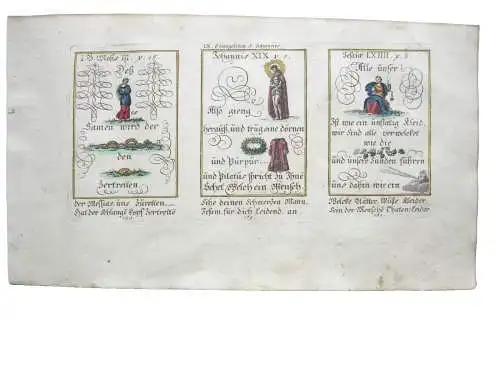 I. B. Mosis III. v. 15.
Deß
Samen wird der
den
Zertretten.
der Messias uns
Hat der Schlangē Kopf Zertrettē
IX. Evangelium S. Johannis
Johannis XIX v. 5.
Also gieng
heraus und trug eine dörnen
und Pürpur
und Pilatus spricht zu Ihnē
Sehet Welch ein Mensch
Sehe deinen Schmertzen Mann,
Jesum für dich leidend an
Jesaiæ LXIIII. v. 6
Alle unser
Ist wie ein unflätig Kleid,
wir sind alle verwelcket
wie die
und unsere Sünden führen
uns dahin wie ein
Welcke Blätter, Wüste Kleider,
Sein der Menschē Thaten leider